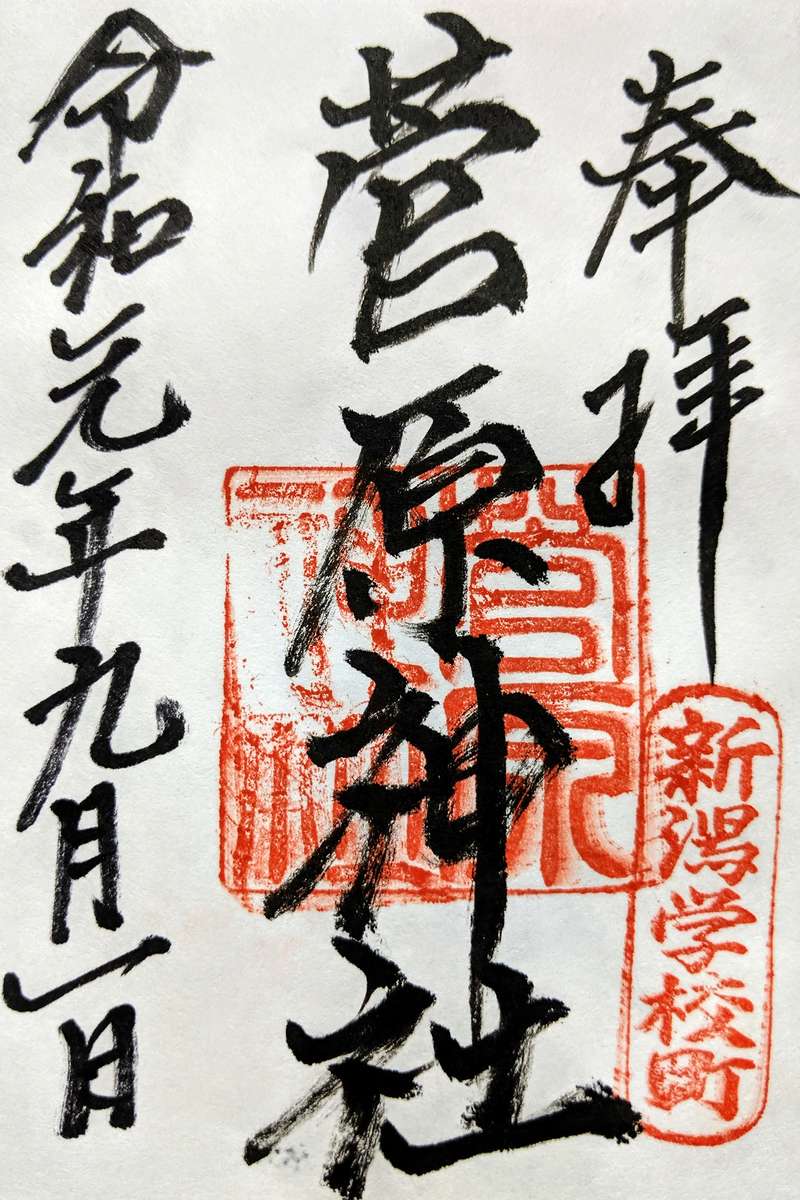 奉拝
新潟学校町
菅原神社
菅原神社
令和元年九月一日